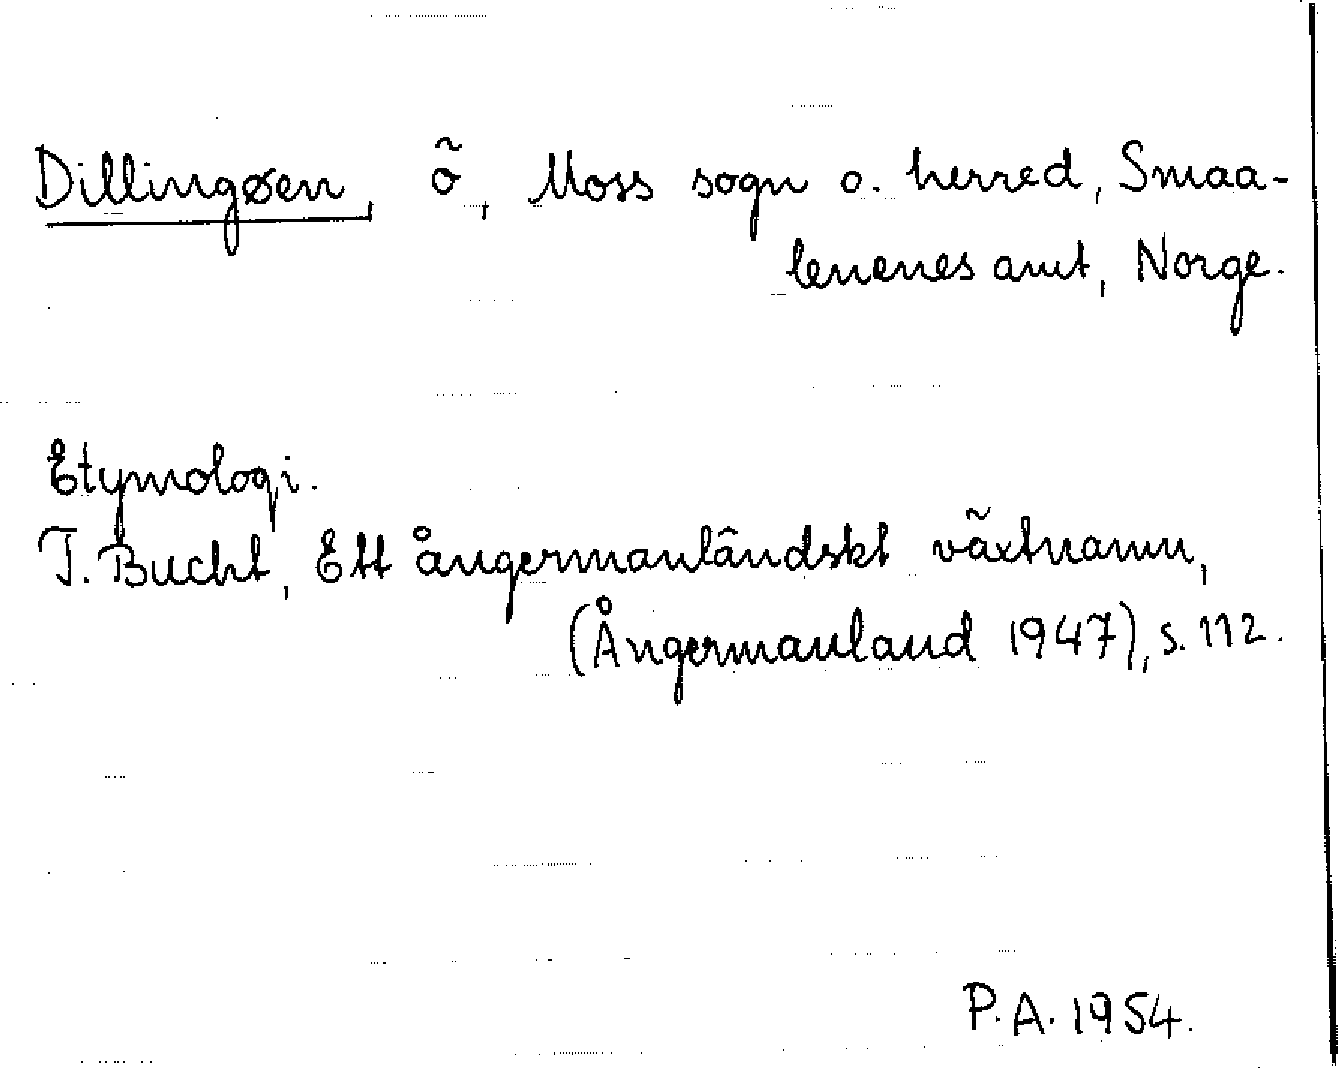 Dillingøen, ö, Moss sogn o. herred, Smaa-
lenenes amt, Norge.
Etymologi.
T. Bucht, Ett ångermanländskt växtnamn,
(Ångermanland 1947), s. 112.
P.A. 1954.